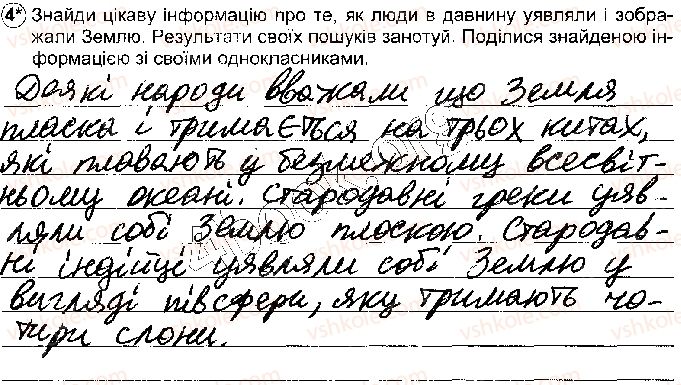 4* Знайди цікаву інформацію про те, як люди в давнину уявляли і зобра-
жали Землю. Результати своїх пошуків занотуй. Поділися знайденою ін-
формацією зі своїми однокласниками.
Деякі народи вважали що Земля
пласка і тримається на трьох китах,
які плавають у безмежному всесвіт-
ньому океані. Стародавні греки уяв-
ляли собі Землю плоскою. Стародав-
ні індійці уявляли собі Землю у
вигляді півсфери, яку тримають чо-
тири слони.